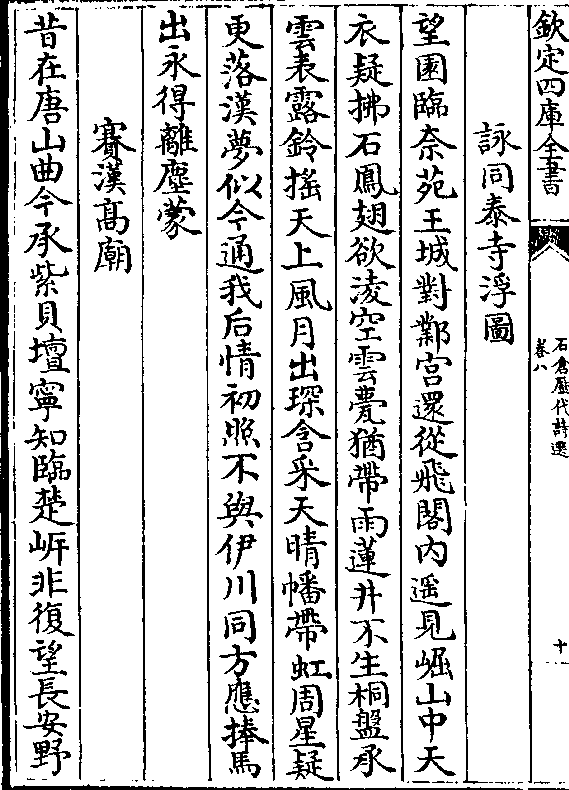 欽定四庫全書
石倉歷代詩選
卷八
十
詠同泰寺浮圖
望園臨柰苑王城對鄴宮還從飛閣内遥見崛山中天
衣疑拂石鳳翅欲淩空雲甍猶帶雨蓮井不生桐盤承
雲表露鈴揺天上風月出琛含采天晴幡帶虹周星疑
更落漢夢似今通我后情初照不與伊川同方應捧馬
出永得離塵蒙
賽漢髙廟
昔在唐山曲今承紫貝壇寧知臨楚岍非復望長安野